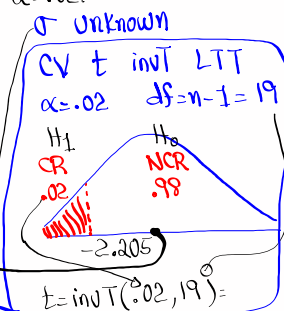 σ unknown
CV t invT LTT
α=.02 df=n-1=19
H₁ H₀
CR NCR
.02 .98
-2.205
t=invT(.02,19)=